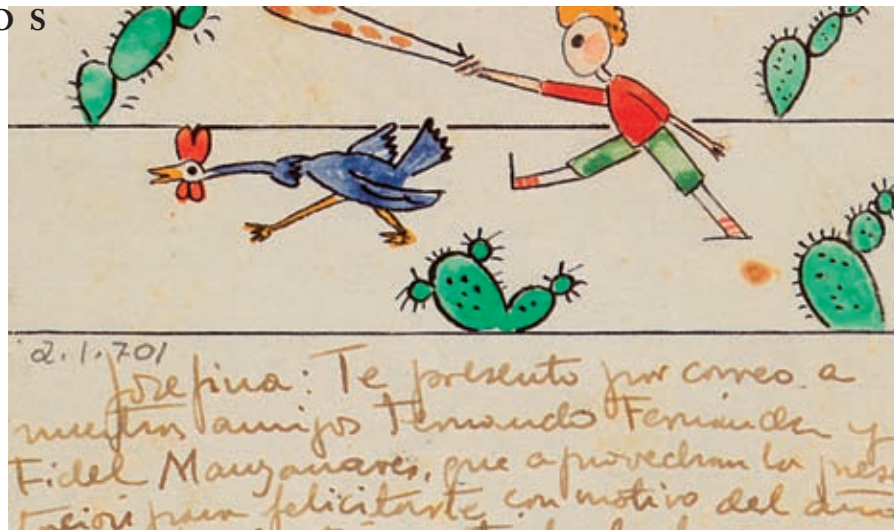 OS
2.1.701
Josefina: Te presento por correo a
nuestros amigos Fernando Fernández y
Fidel Manzanares, que aprovechan la presen
tación para felicitarte con motivo del